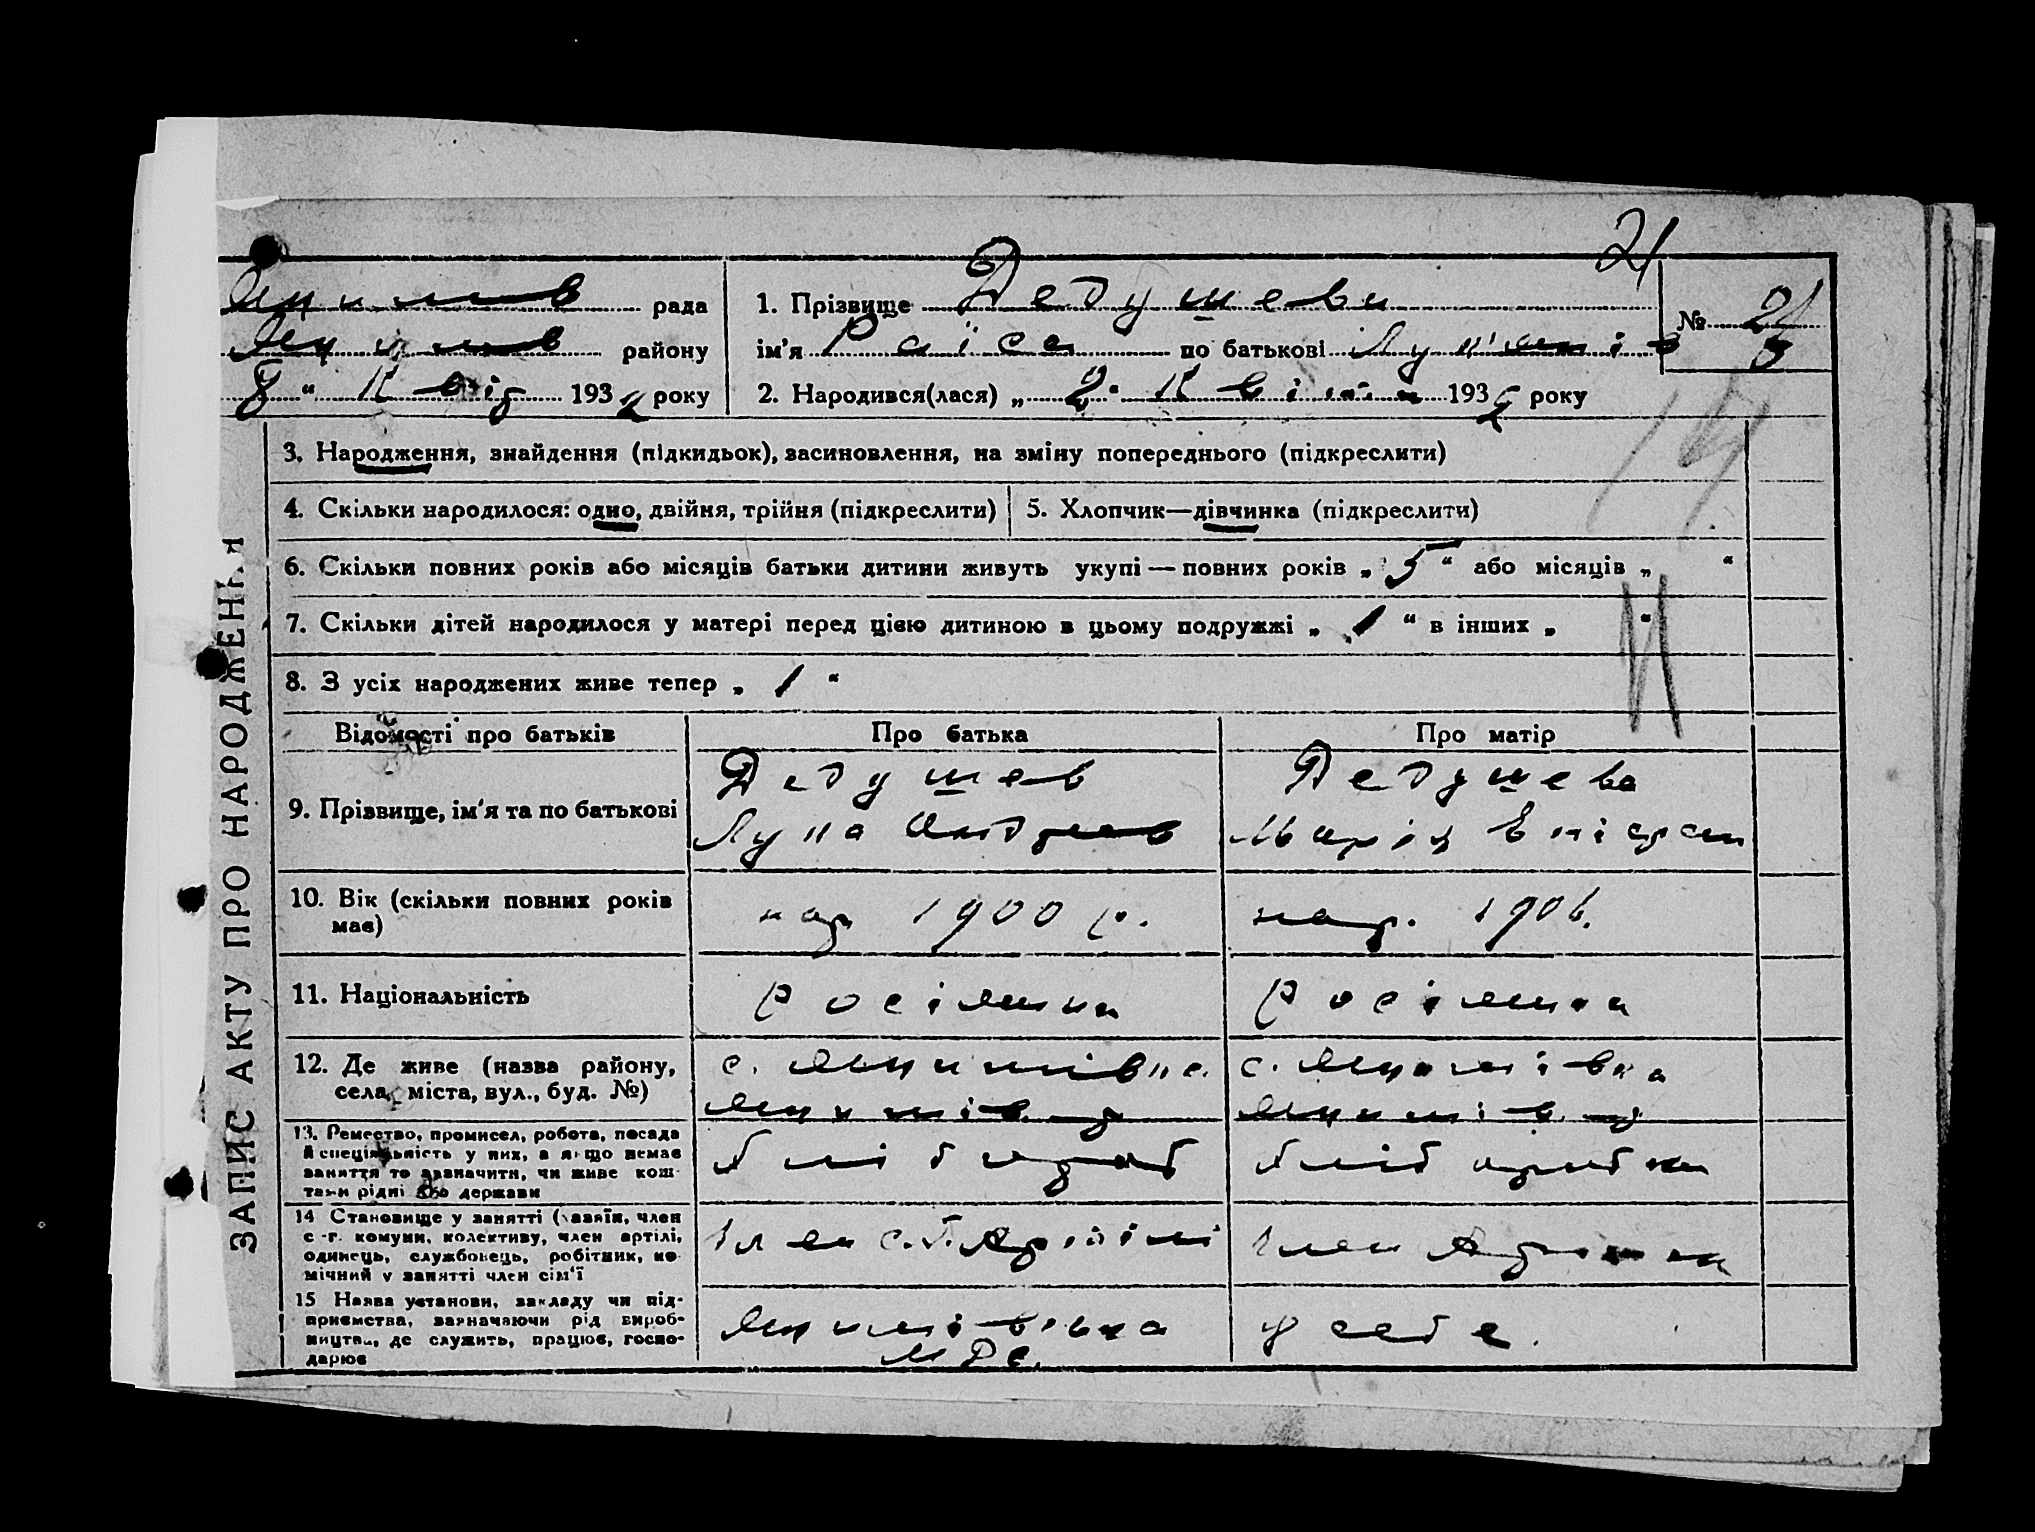 21
рада
1. Прізвище Дедушева
№ 21
району
ім'я Раїса по батькові
8 " Квіт 1932 року
2. Народився(лася) „ 2 " Квітня 1932 року
3. Народження, знайдення (підкидьок), засиновлення, на зміну попереднього (підкреслити)
4. Скільки народилося: одно, двійня, трійня (підкреслити)
5. Хлопчик—дівчинка (підкреслити)
6. Скільки повних років або місяців батьки дитини живуть укупі — повних років „ 5 " або місяців „ "
7. Скільки дітей народилося у матері перед цією дитиною в цьому подружжі „ 1 " в інших „ "
8. З усіх народжених живе тепер „ 1 "
Відомості про батьків
Про батька
Про матір
9. Прізвище, ім'я та по батькові
Дедушев
Лука
Дедушева
Марія
10. Вік (скільки повних років
має)
нар 1900 р.
нар. 1906.
11. Національність
росіянин
росіянка
12. Де живе (назва району,
села, міста, вул., буд. №)
с.
с.
13. Ремество, промисел, робота, посада
й спеціяльність у них, а якщо немає
заняття то зазначити, чи живе кош-
тами рідні або держави
Хлібороб
Хліборобка
14 Становище у занятті (хазяїн, член
с.-г. комуни, колективу, член артілі,
одинець, службовець, робітник, по-
мічний у занятті член сім'ї
Член с.г. Артілі
Член Артілі
15 Назва установи, закладу чи під-
приємства, зазначаючи рід вироб-
ництва, де служить, працює, госпо-
дарює
у себе.
ЗАПИС АКТУ ПРО НАРОДЖЕННЯ